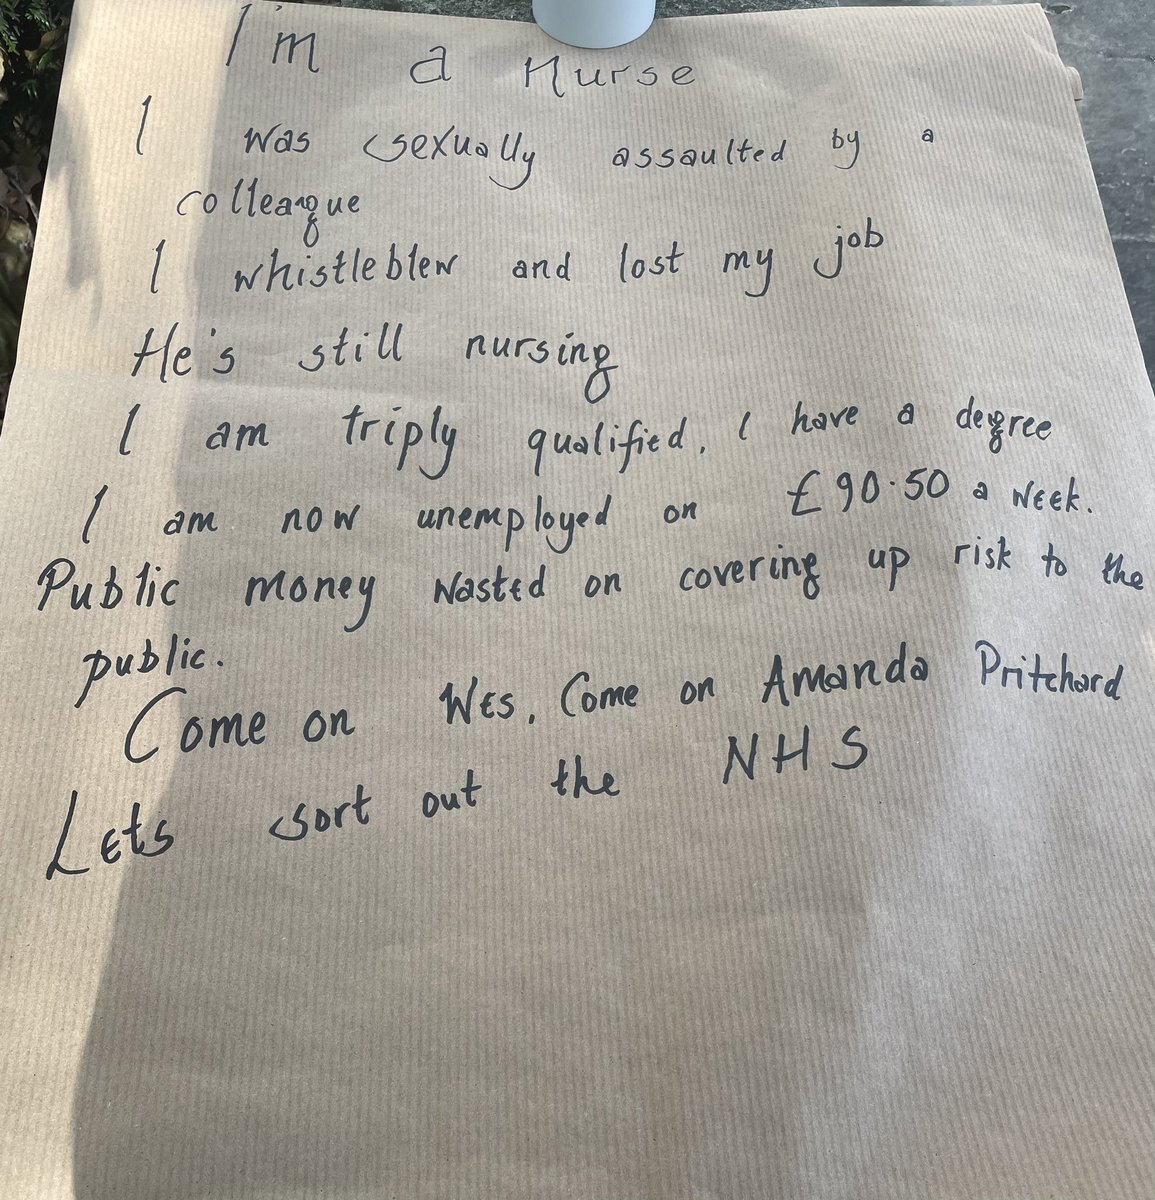 I'm a nurse
I was sexually assaulted by a
colleague
I whistleblew and lost my job
He's still nursing
I am triply qualified, I have a degree
I am now unemployed on £90.50 a week.
Public money wasted on covering up risk to the
public.
Come on Wes, Come on Amanda Pritchard
Lets sort out the NHS